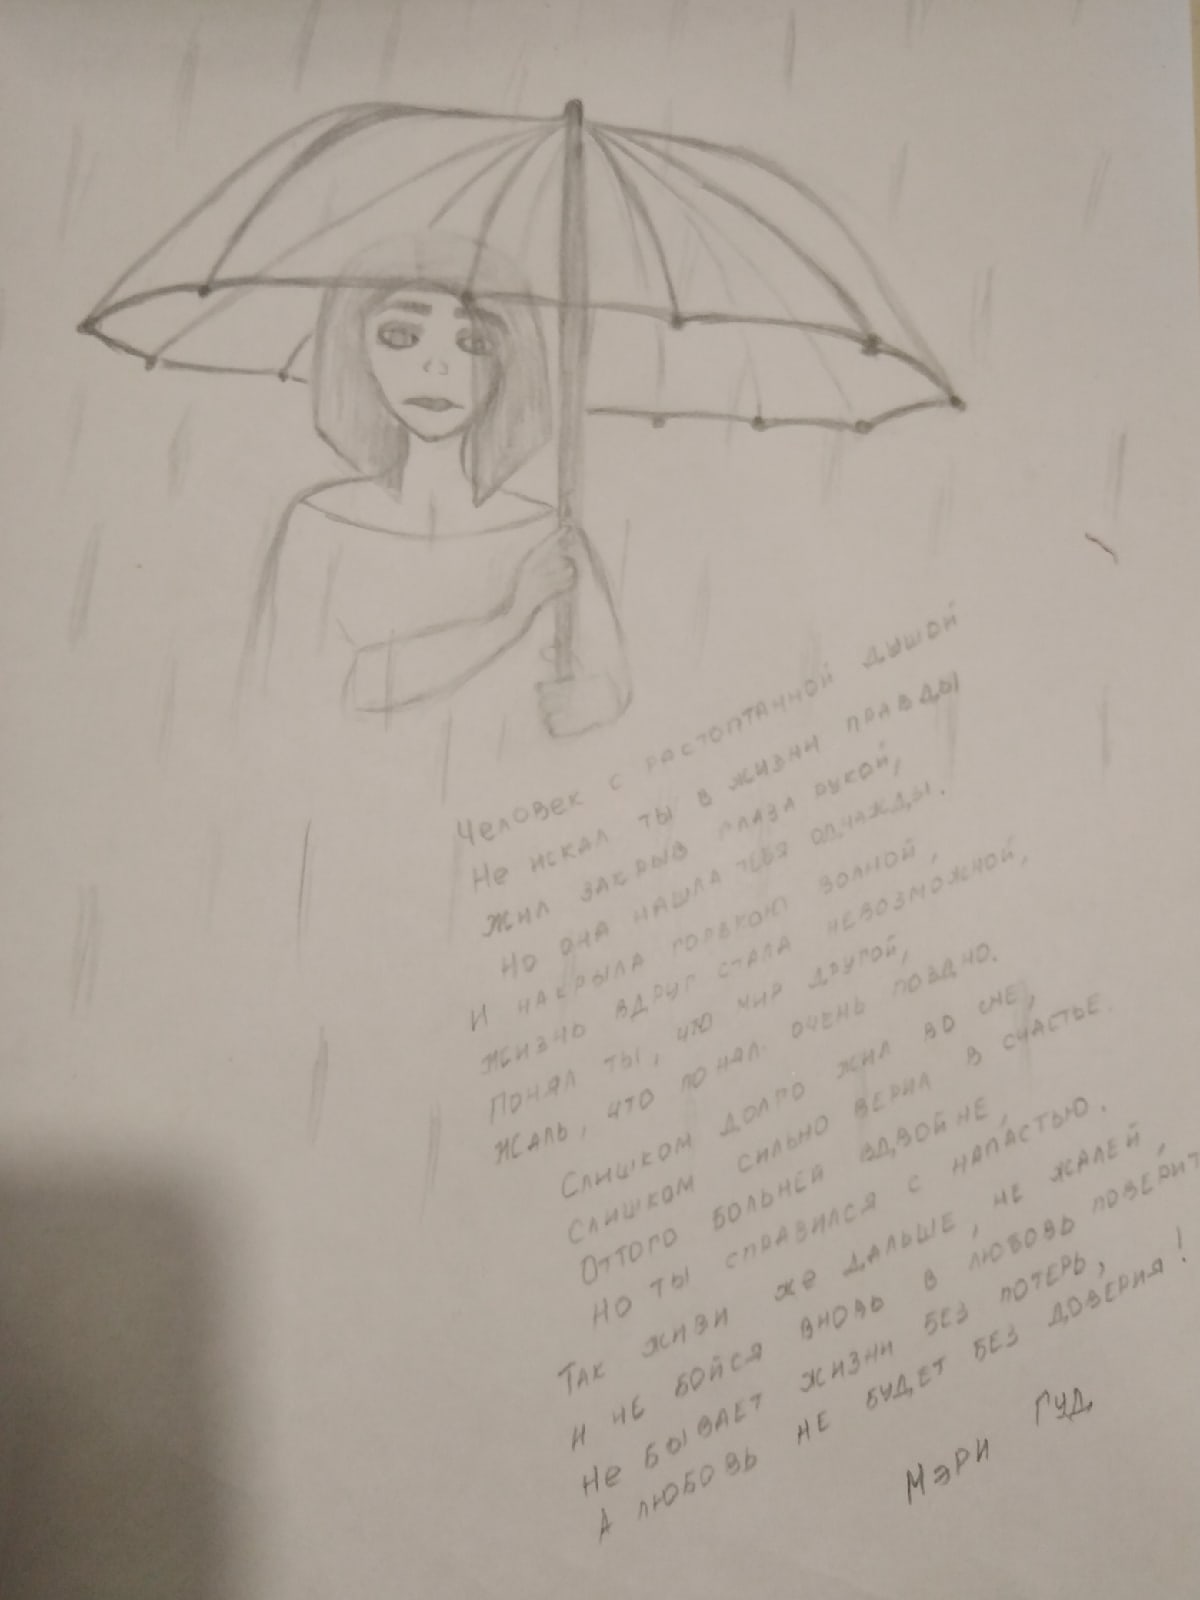 Человек с растоптанной душой
Не искал ты в жизни правды
Жил закрыв глаза рукой,
Но она нашла тебя однажды.
И накрыла горькою волной,
Жизнь вдруг стала невозможной,
Понял ты, что мир другой,
Жаль, что понял очень поздно.
Слишком долго жил во сне,
Слишком сильно верил в счастье.
Оттого больней вдвойне,
Но ты справился с напастью.
Так живи же дальше, не жалей,
И не бойся вновь в любовь поверить
Не бывает жизни без потерь,
А любовь не будет без доверия!
Мэри Гуд